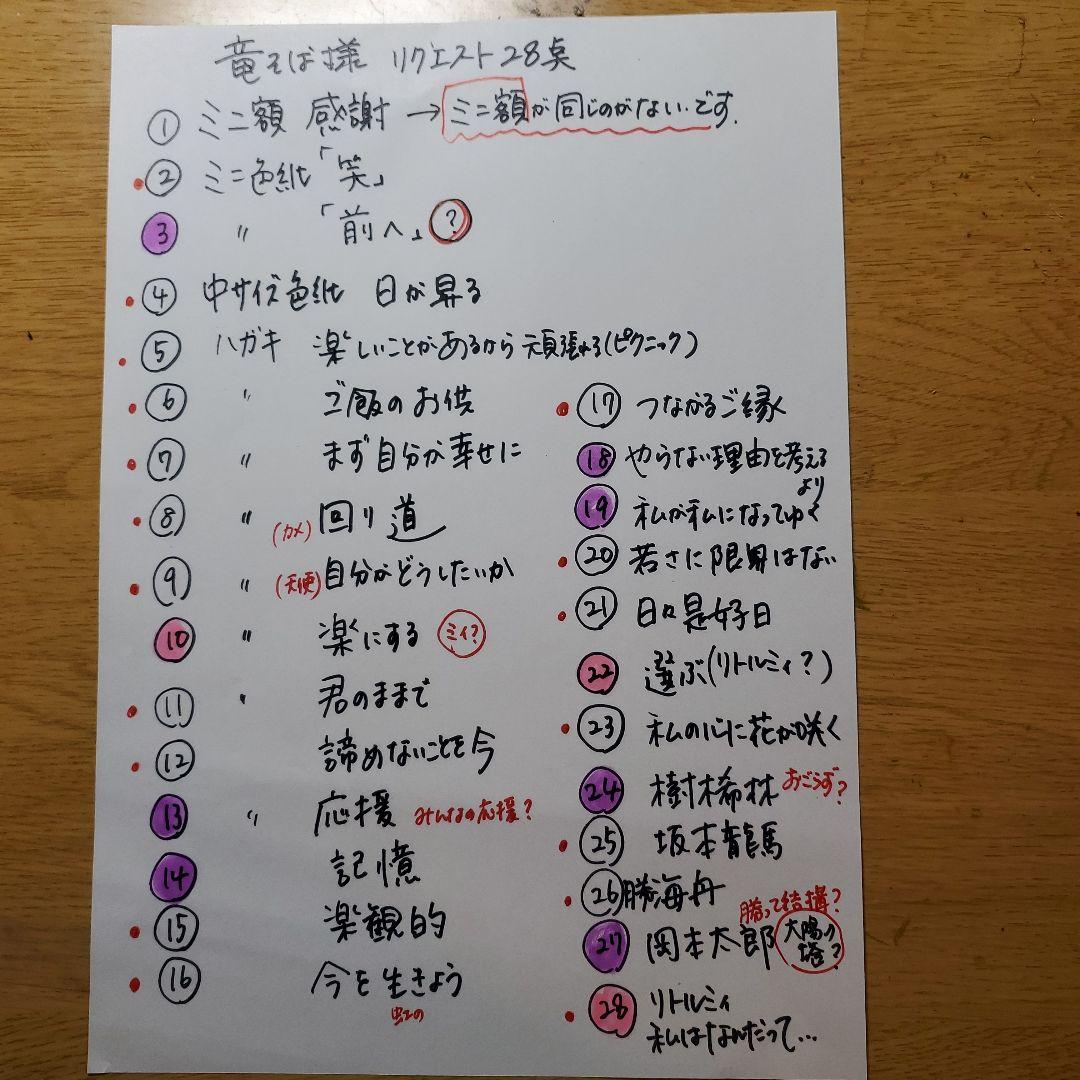 竜そば様 リクエスト28点
① ミニ額 感謝 → ミニ額が同じのがないです.
② ミニ色紙「笑」
③ 〃 「前へ」?
④ 中サイズ色紙 日が昇る
⑤ ハガキ 楽しいことがあるから頑張れる(ピクニック)
⑥ 〃 ご飯のお供
⑦ 〃 まず自分が幸せに
⑧ 〃 (カメ) 回り道
⑨ 〃 (天使) 自分がどうしたいか
⑩ 〃 楽にする ミィ?
⑪ 〃 君のままで
⑫ 諦めないことを今
⑬ 〃 応援 みんなの応援?
⑭ 記憶
⑮ 楽観的
⑯ 今を生きよう
虹の
⑰ つながるご縁
⑱ やらない理由を考える
より
⑲ 私が私になってゆく
⑳ 若さに限界はない
㉑ 日々是好日
㉒ 選ぶ(リトルミィ?)
㉓ 私の心に花が咲く
㉔ 樹木希林 おごらず?
㉕ 坂本龍馬
㉖ 勝海舟
勝って結構?
㉗ 岡本太郎 太陽の
塔?
㉘ リトルミィ
私はなんだって…